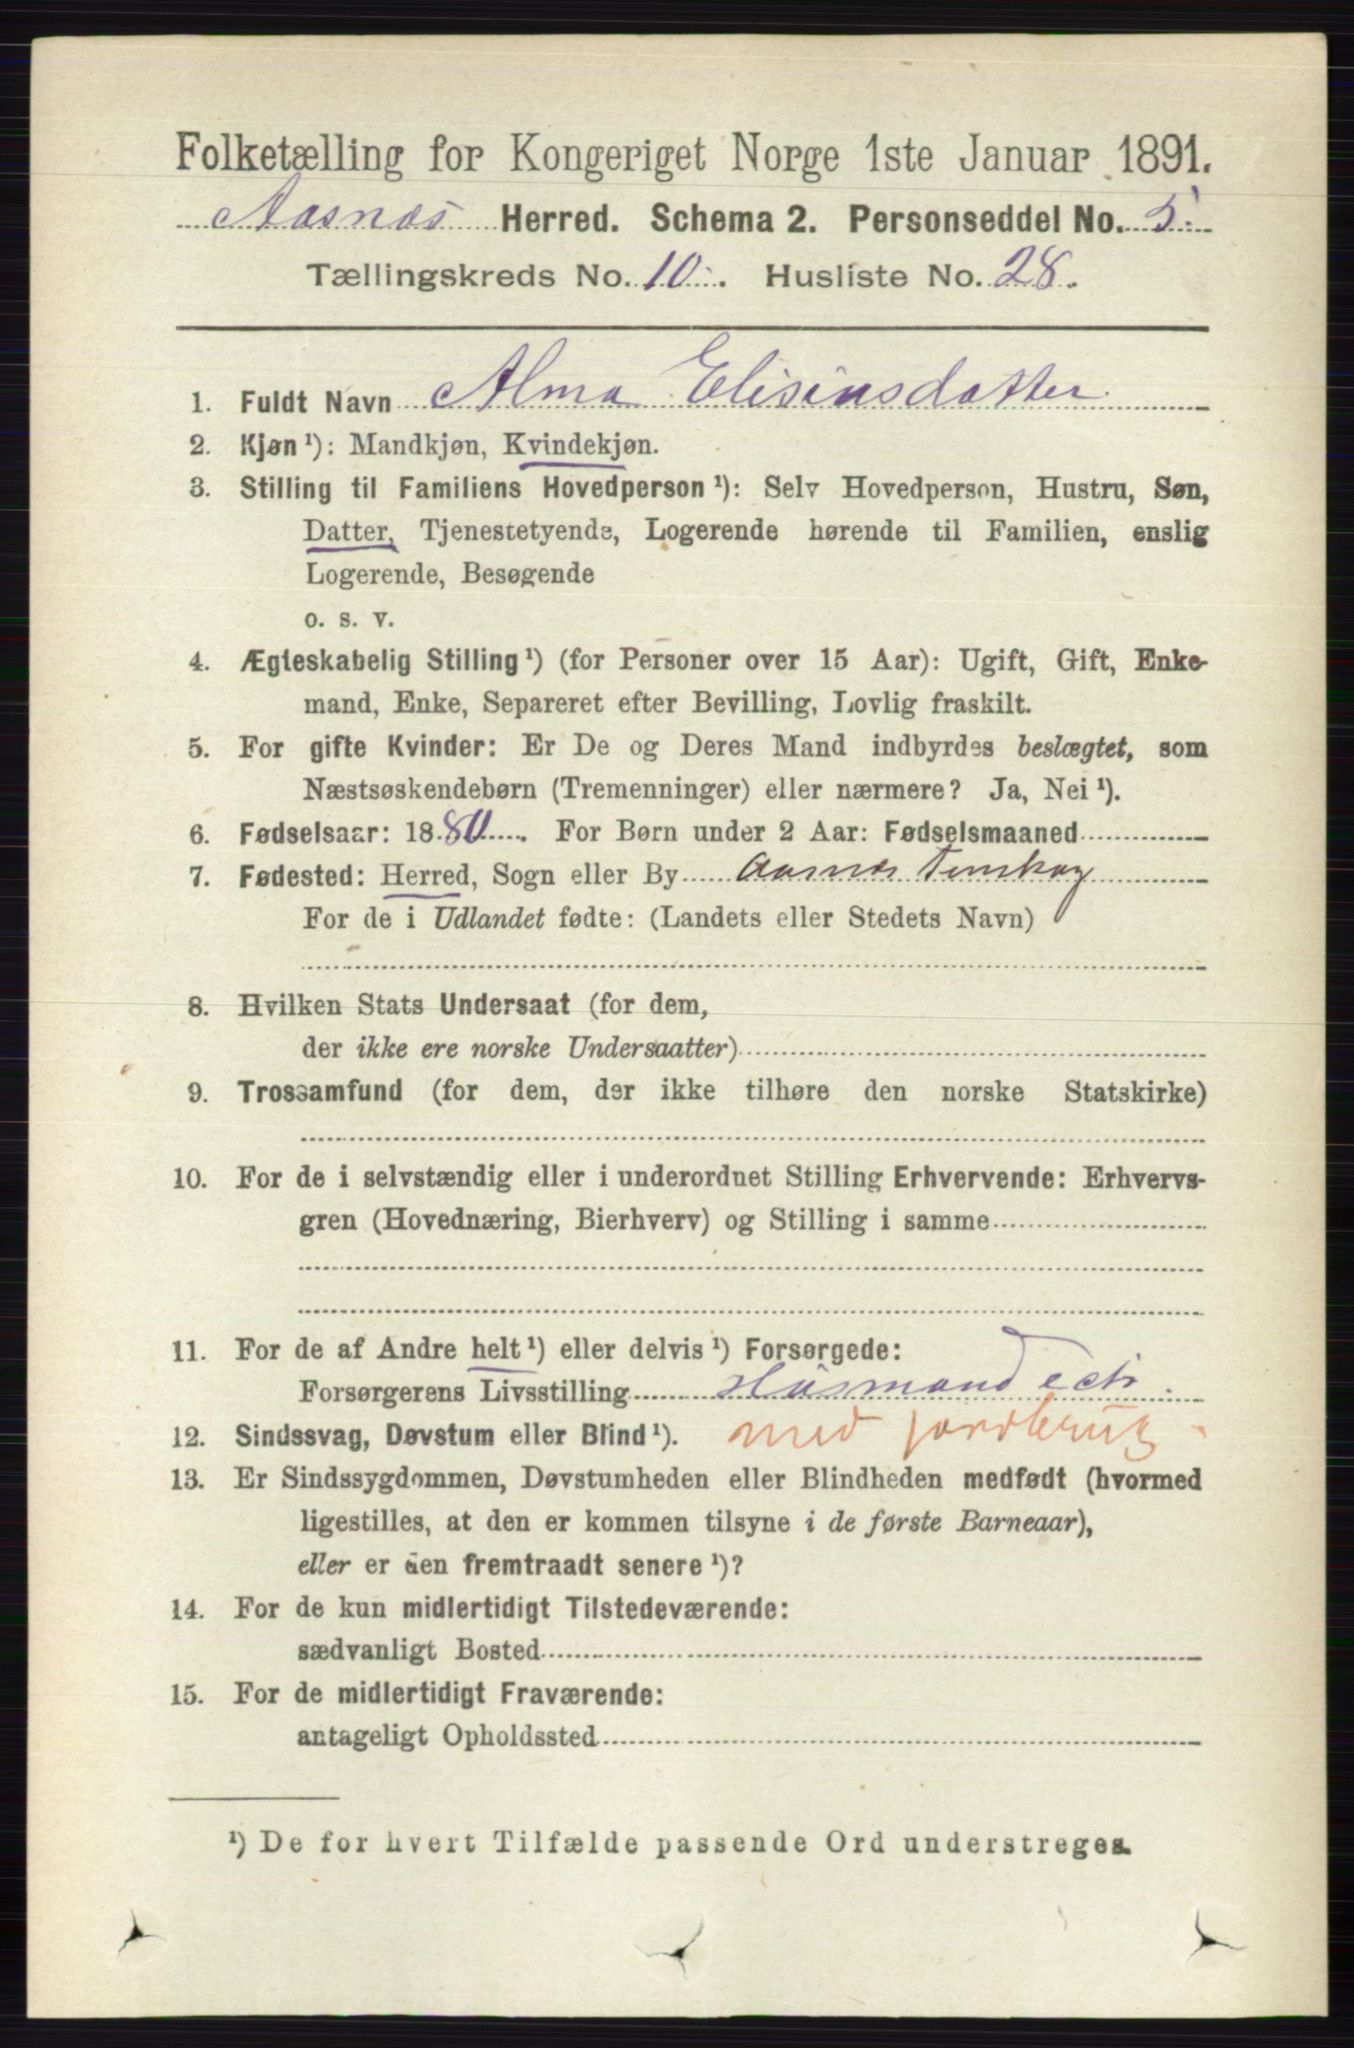 Folketælling for Kongeriget Norge 1ste Januar 1891.
Aasnæs Herred. Schema 2. Personseddel No. 5.
Tællingskreds No. 10. Husliste No. 28.
1. Fuldt Navn Alma Elisiusdatter
2. Kjøn ¹): Mandkjøn, Kvindekjøn.
3. Stilling til Familiens Hovedperson ¹): Selv Hovedperson, Hustru, Søn,
Datter, Tjenestetyende, Logerende hørende til Familien, enslig
Logerende, Besøgende
o. s. v.
4. Ægteskabelig Stilling ¹) (for Personer over 15 Aar): Ugift, Gift, Enke-
mand, Enke, Separeret efter Bevilling, Lovlig fraskilt.
5. For gifte Kvinder: Er De og Deres Mand indbyrdes beslægtet, som
Næstsøskendebørn (Tremenninger) eller nærmere? Ja, Nei ¹).
6. Fødselsaar: 1880. For Børn under 2 Aar: Fødselsmaaned
7. Fødested: Herred, Sogn eller By Aasnæs Finskog
For de i Udlandet fødte: (Landets eller Stedets Navn)
8. Hvilken Stats Undersaat (for dem,
der ikke ere norske Undersaatter)
9. Trossamfund (for dem, der ikke tilhøre den norske Statskirke)
10. For de i selvstændig eller i underordnet Stilling Erhvervende: Erhvervs-
gren (Hovednæring, Bierhverv) og Stilling i samme
11. For de af Andre helt ¹) eller delvis ¹) Forsørgede:
Forsørgerens Livsstilling Husmand
12. Sindssvag, Døvstum eller Blind ¹). med jordbrug
13. Er Sindssygdommen, Døvstumheden eller Blindheden medfødt (hvormed
ligestilles, at den er kommen tilsyne i de første Barneaar),
eller er den fremtraadt senere ¹)?
14. For de kun midlertidigt Tilstedeværende:
sædvanligt Bosted
15. For de midlertidigt Fraværende:
antageligt Opholdssted
¹) De for hvert Tilfælde passende Ord understreges.